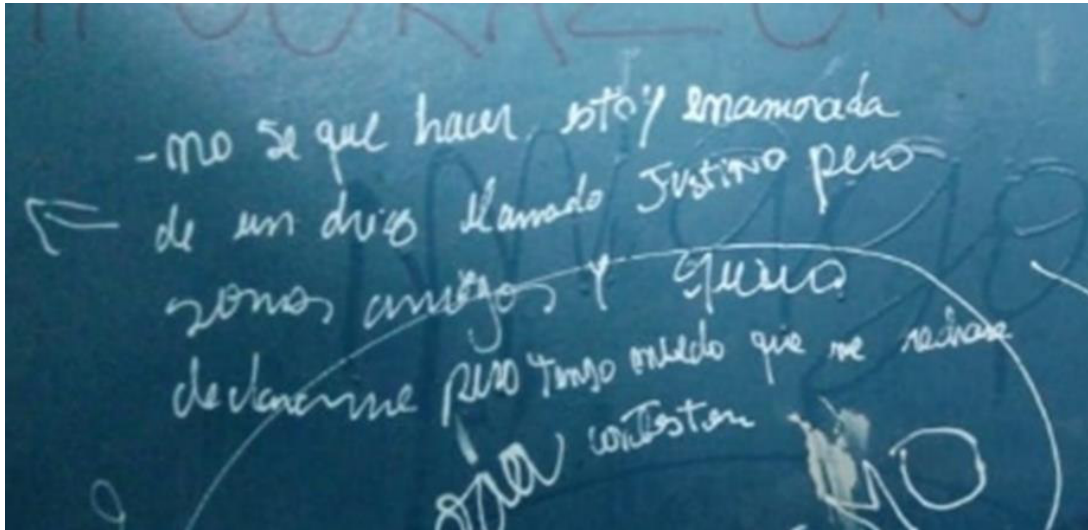 CORAZON
-no se que hacer estoy enamorada
de un chico llamado Justino pero
somos amigos y quiero
declararme pero tengo miedo que me rechase
contesten